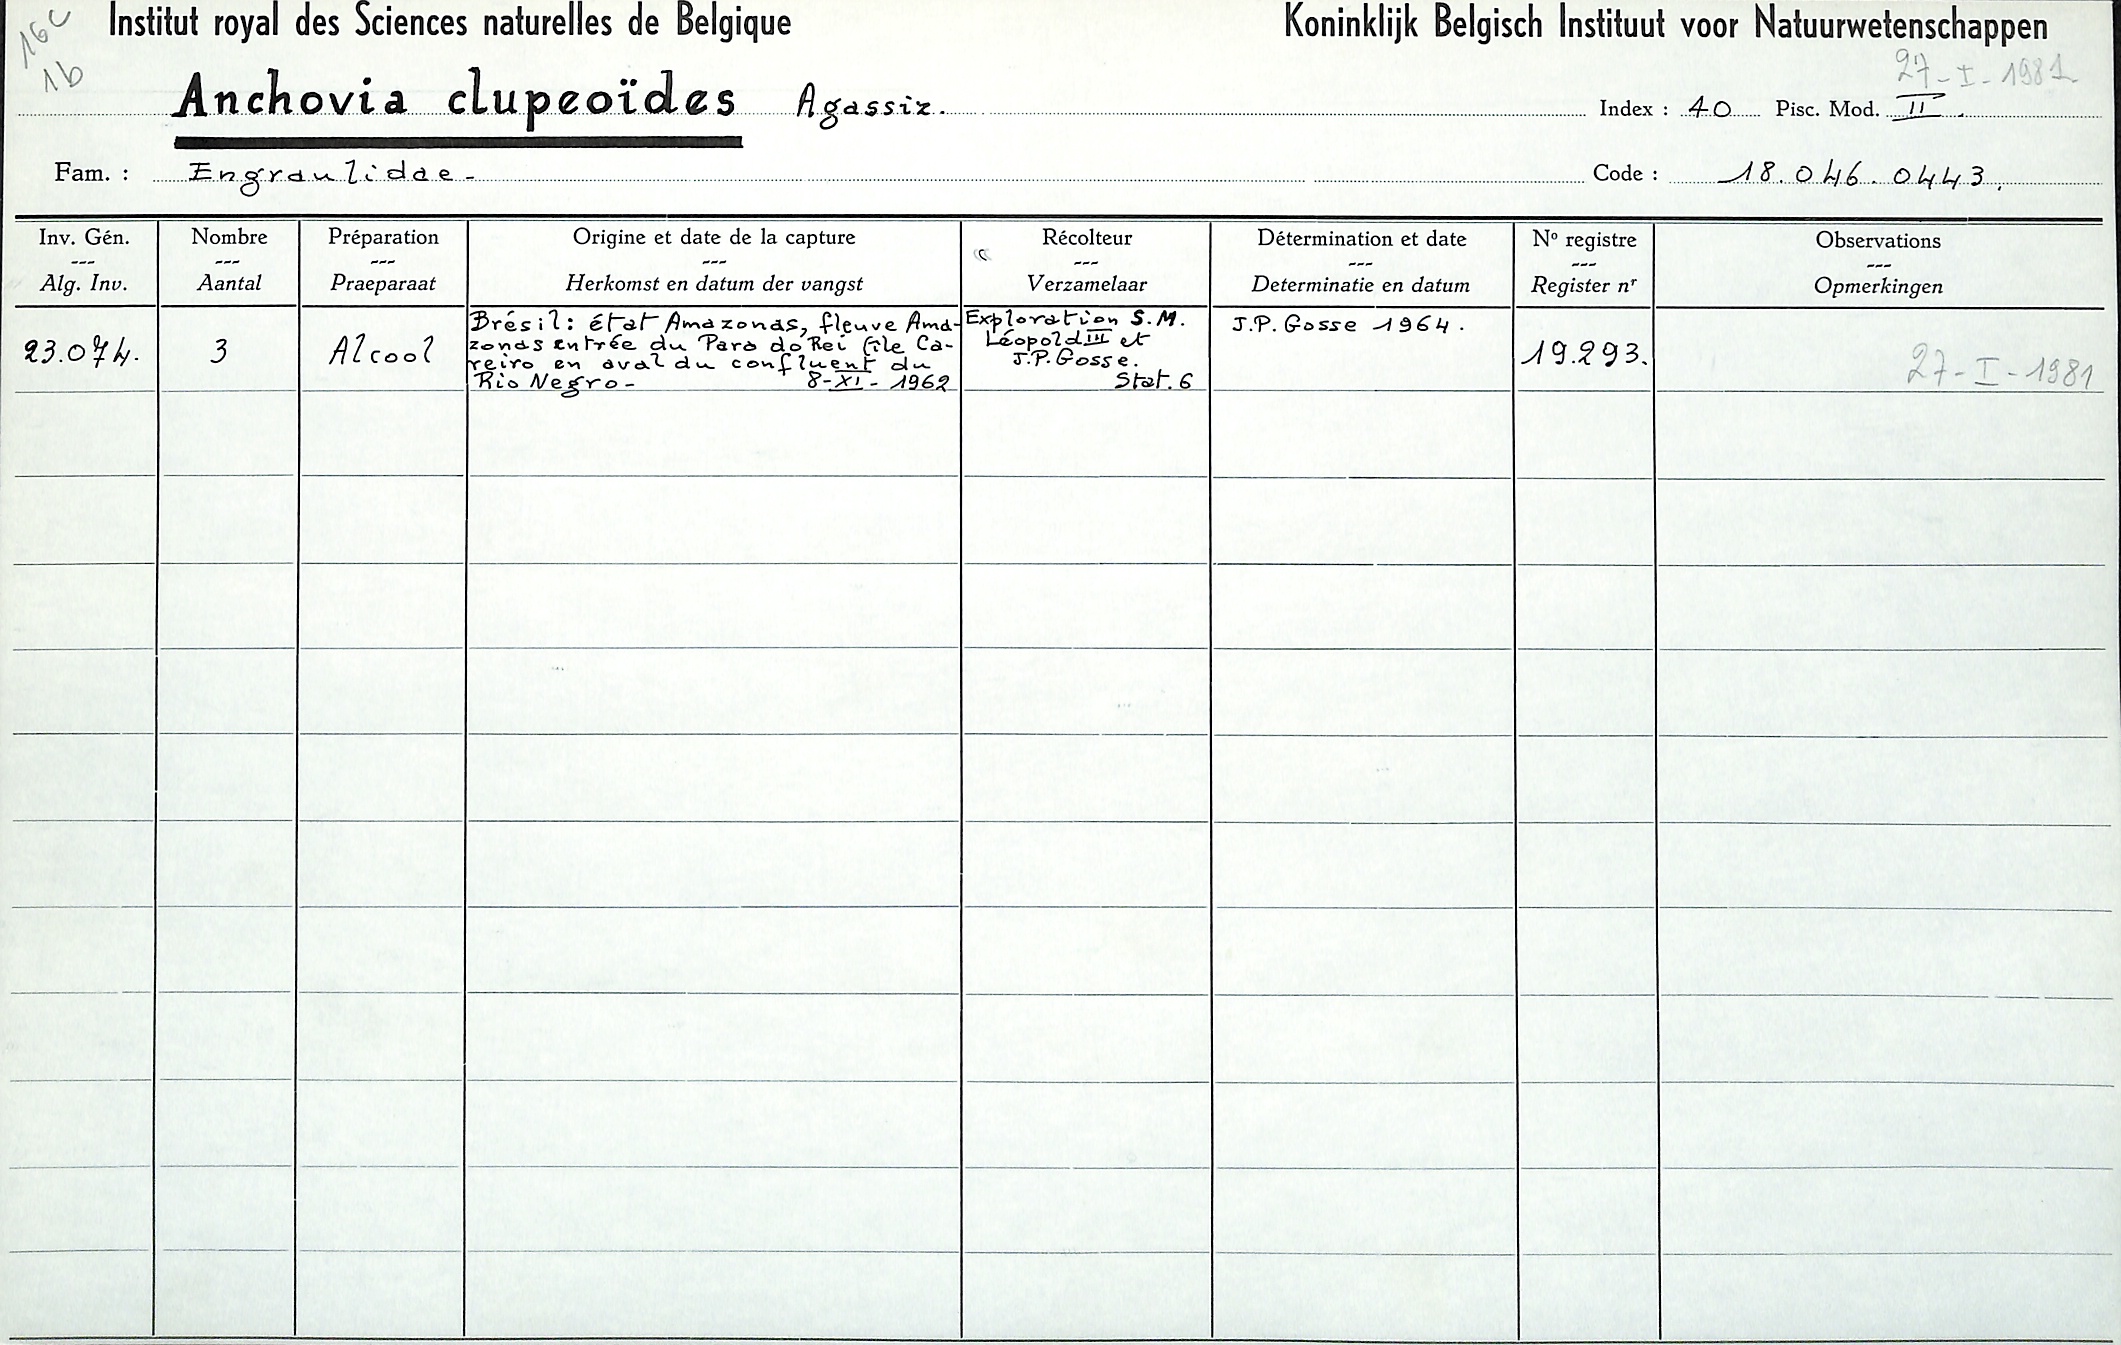 16c
1b
Institut royal des Sciences naturelles de Belgique
Koninklijk Belgisch Instituut voor Natuurwetenschappen
27-I-1981
Anchovia clupeoïdes Agassiz.
Index : 40 Pisc. Mod. II.
Fam. : Engraulidae-
Code : 18.046.0443.
Inv. Gén.
---
Alg. Inv.
Nombre
---
Aantal
Préparation
---
Praeparaat
Origine et date de la capture
---
Herkomst en datum der vangst
Récolteur
---
Verzamelaar
Détermination et date
---
Determinatie en datum
Nº registre
---
Register nr
Observations
---
Opmerkingen
23.074.
3
Alcool
Brésil: état Amazonas, fleuve Ama-
zonas entrée du Para do Rei (île Ca-
reiro en aval du confluent du
Rio Negro- 8-XI-1962
Exploration S.M.
Léopold III et
J.P.Gosse.
Stat.6
J.P. Gosse 1964.
19.293.
27-I-1981